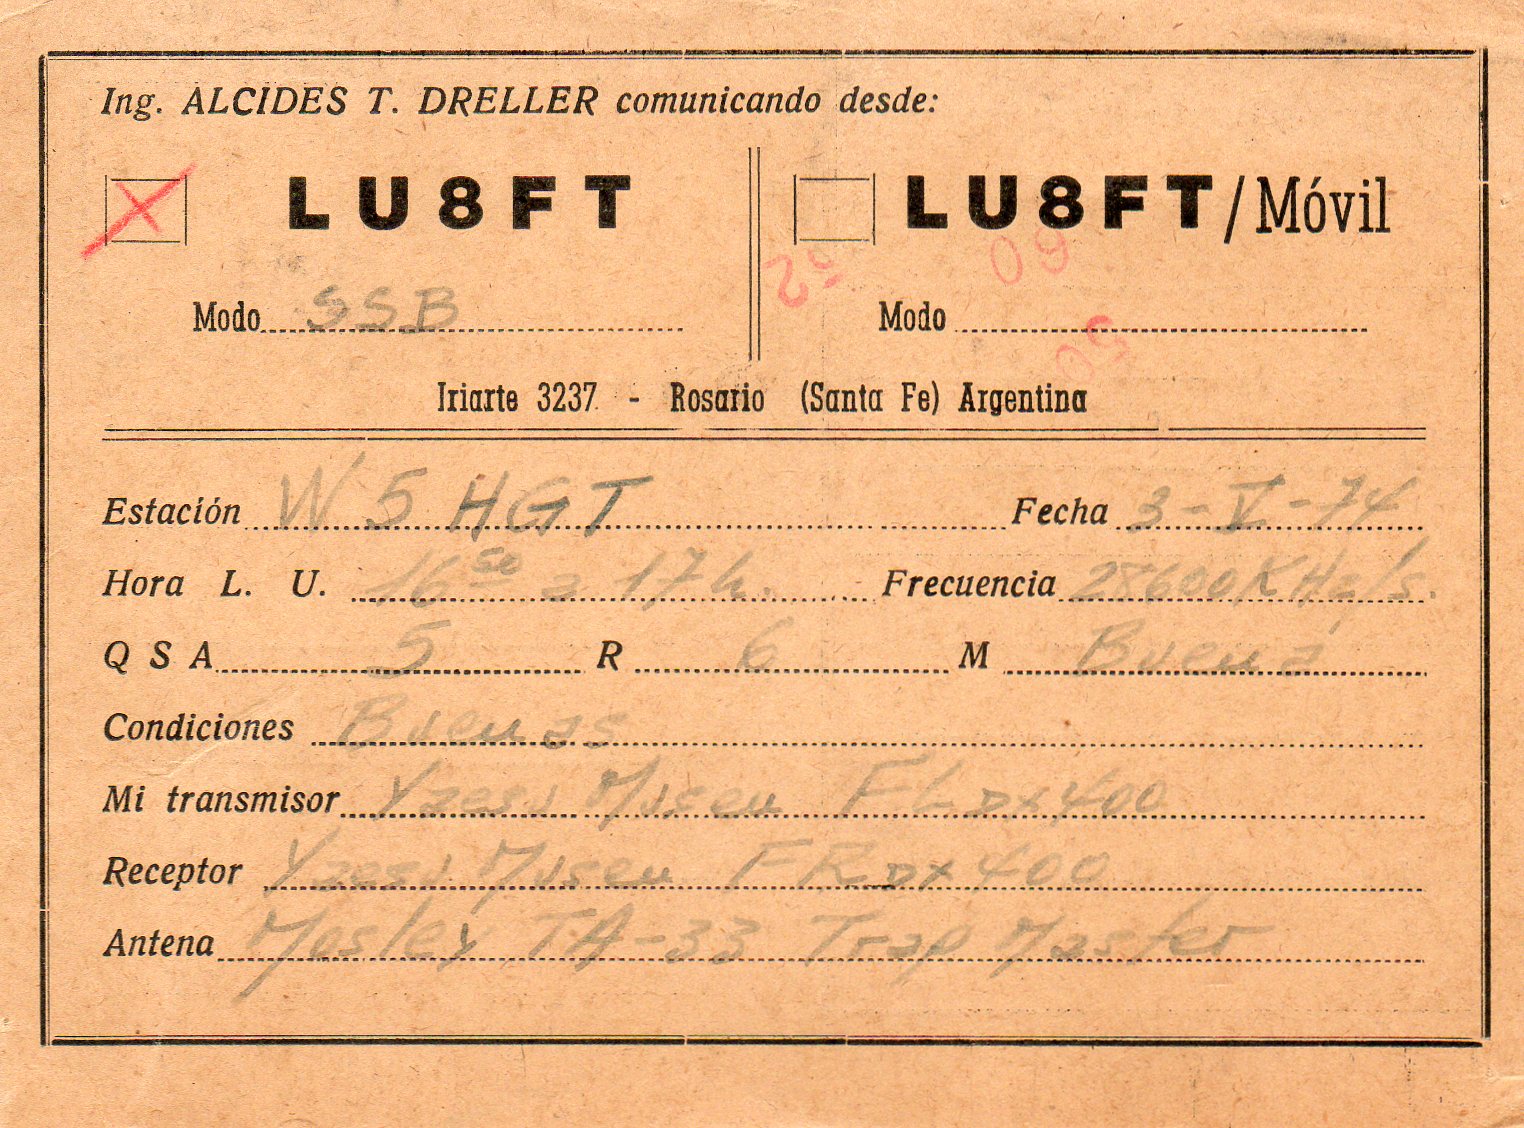 Ing. ALCIDES T. DRELLER comunicando desde:
LU8FT LU8FT/Móvil
52 60
Modo SSB Modo
50
Iriarte 3237 - Rosario (Santa Fe) Argentina
Estación W5HGT Fecha 3-V-74
Hora L. U. 16 50 a 17 h. Frecuencia 28600 KHz/s.
Q S A 5 R 6 M Buena
Condiciones Buenas
Mi transmisor Yaesu Musen FLDX400
Receptor Yaesu Musen FRDX400
Antena Mosley TA-33 Trap Master